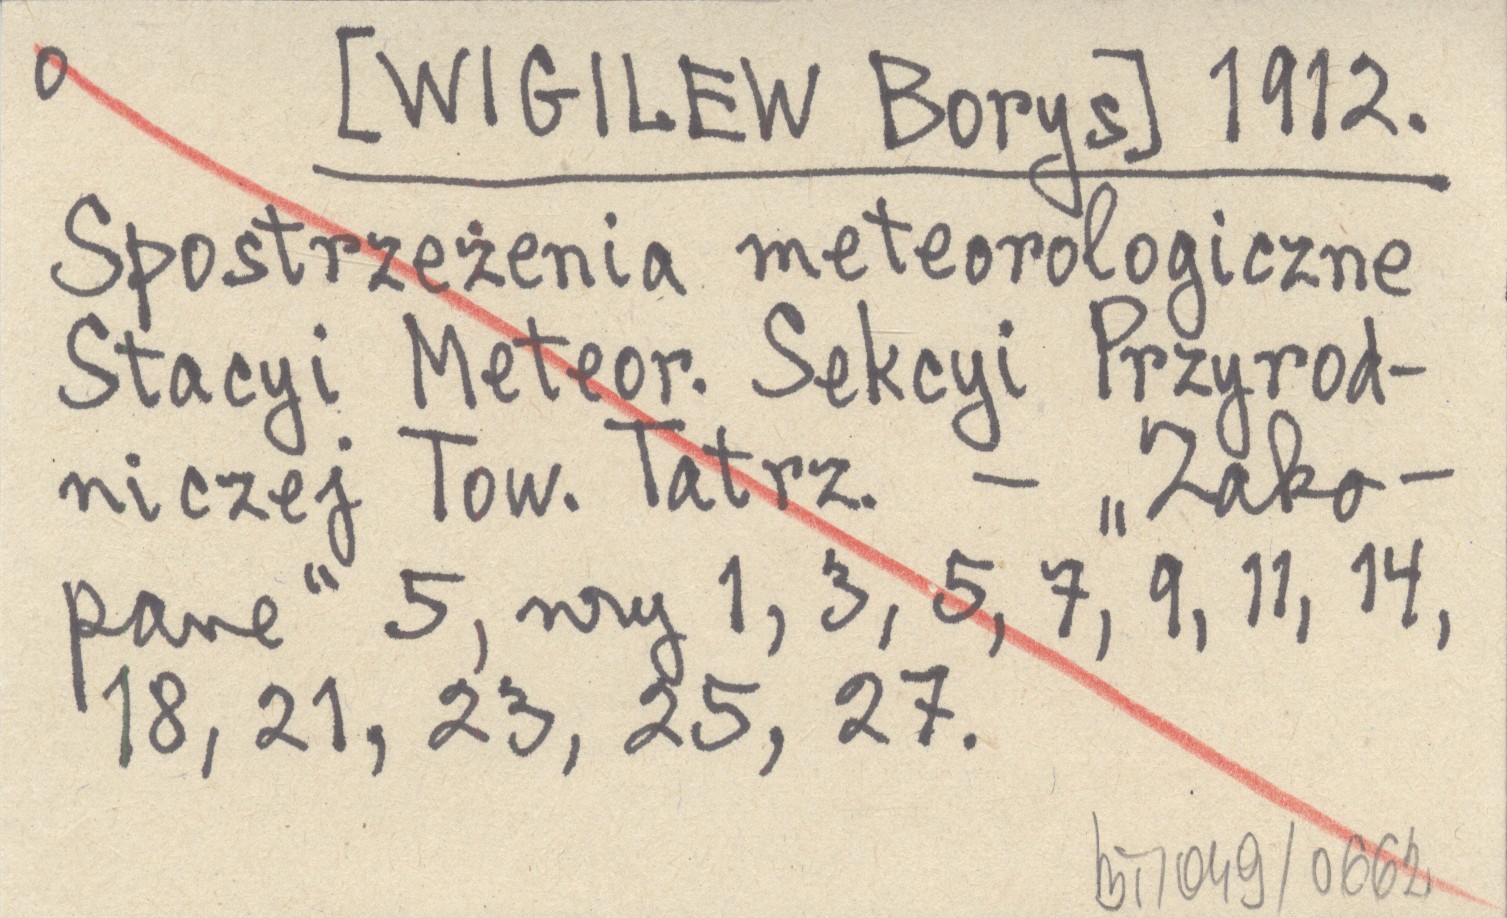 0 [WIGILEW Borys] 1912.
Spostrzeżenia meteorologiczne
Stacyi Meteor. Sekcyi Przyrod-
niczej Tow. Tatrz. – „Zako-
pane“ 5, nry 1, 3, 5, 7, 9, 11, 14,
18, 21, 23, 25, 27.
049/0662